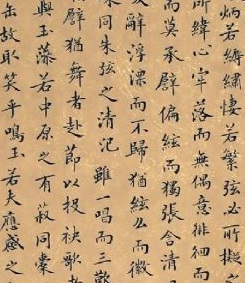 炳若縟繡悽若繁絃必所擬之
所緯心牢落而無偶意徘徊而
而莫承譬偏絃而獨張含清
辭浮漂而不歸猶絃么而徽
同朱弦之清氾雖一唱而三歎
譬猶舞者赴節以投袂歌
與玉藻若中原之有菽同橐
缶故取笑乎鳴玉若夫應感之